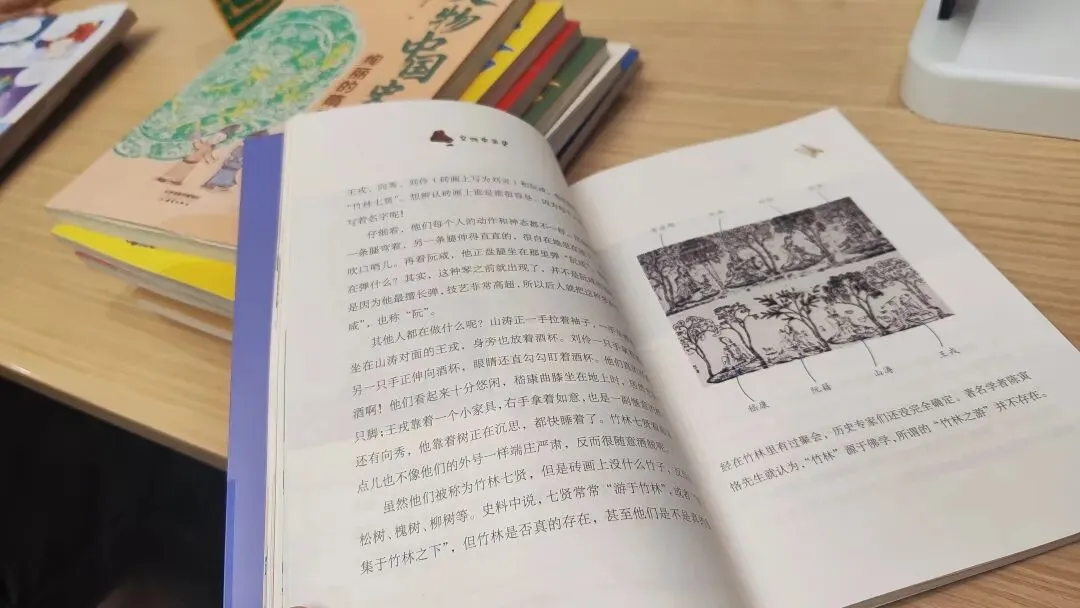 物中国
王戎、向秀、刘伶（砖画上写为刘灵）和阮咸，
“竹林七贤”。想辨认砖画上谁是谁很容易，因为每个
写着名字呢！
仔细看，他们每个人的动作和神态都不一样。
一条腿弯着，另一条腿伸得直直的，很自在地坐在
吹口哨儿。再看阮咸，他正盘腿坐在那里弹“阮咸
在弹什么？其实，这种琴之前就出现了，并不是阮咸
是因为他最擅长弹，技艺非常高超，所以后人就把这种
咸”，也称“阮”。
其他人都在做什么呢？山涛正一手拉着袖子，一手
坐在山涛对面的王戎，身旁也放着酒杯。刘伶一只手拿着
另一只手正伸向酒杯，眼睛还直勾勾盯着酒杯。他们真
酒啊！他们看起来十分悠闲，嵇康曲膝坐在地上时，居然
只脚；王戎靠着一个小家具，右手拿着如意，也是一副惬意
还有向秀，他靠着树正在沉思，都快睡着了。竹林七贤看
点儿也不像他们的外号一样端庄严肃，反而很随意洒脱
虽然他们被称为竹林七贤，但是砖画上没什么竹子，反
松树、槐树、柳树等。史料中说，七贤常常“游于竹林”，或者
集于竹林之下”，但竹林是否真的存在，甚至他们是不是真
嵇康
阮籍
山涛
王戎
经在竹林里有过聚会，历史专家们还没完全确定。著名学者陈寅
恪先生就认为，“竹林”源于佛学，所谓的“竹林之游”并不存在。